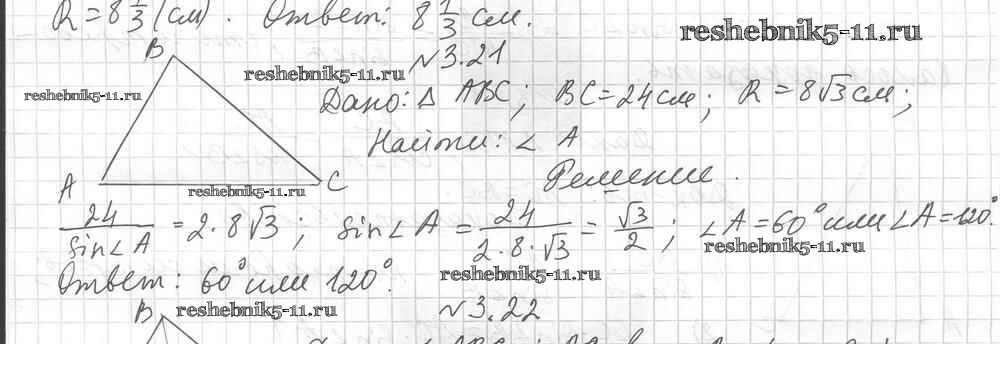 R = 8 1/3 (см). Ответ: 8 1/3 см.
reshebnik5-11.ru
B
reshebnik5-11.ru №3.21
reshebnik5-11.ru
Дано: Δ ABC; BC = 24 см; R = 8√3 см;
Найти: ∠ A
A reshebnik5-11.ru C Решение.
24/sin∠A = 2·8√3; sin∠A = 24/(2·8·√3) = √3/2; ∠A = 60° или ∠A = 120°.
reshebnik5-11.ru
Ответ: 60° или 120°. reshebnik5-11.ru
B reshebnik5-11.ru №3.22